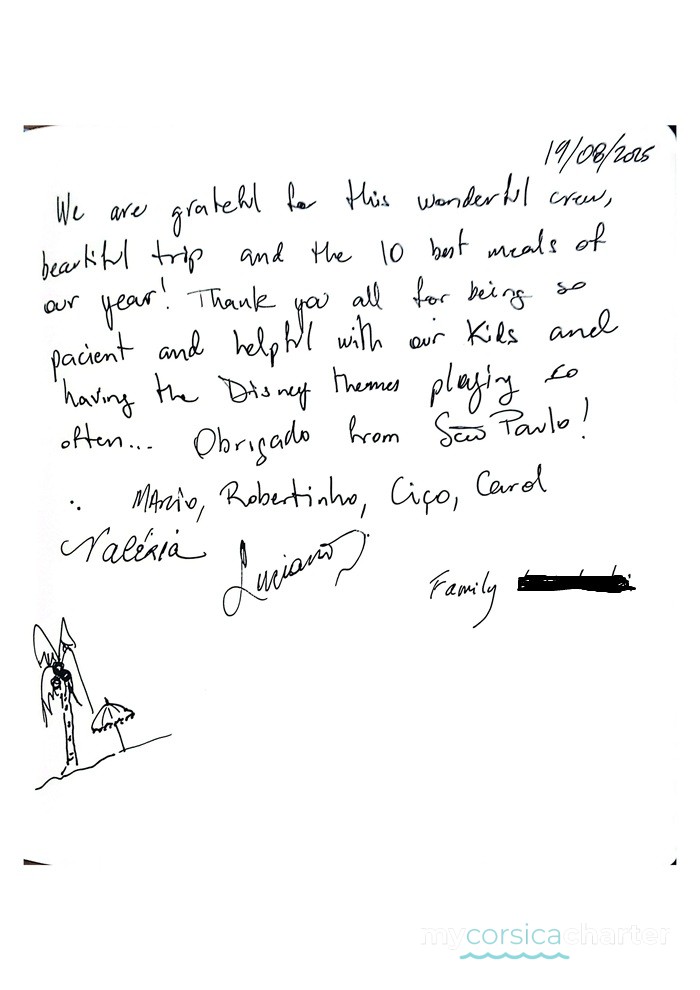 19/08/2025
We are grateful for this wonderful crew,
beautiful trip and the 10 best meals of
our year! Thank you all for being so
pacient and helpful with our Kids and
having the Disney themes playing so
often... Obrigado from São Paulo!
∴ Mario, Robertinho, Ciço, Carol
Valéria Luciano
Family
mycorsicacharter